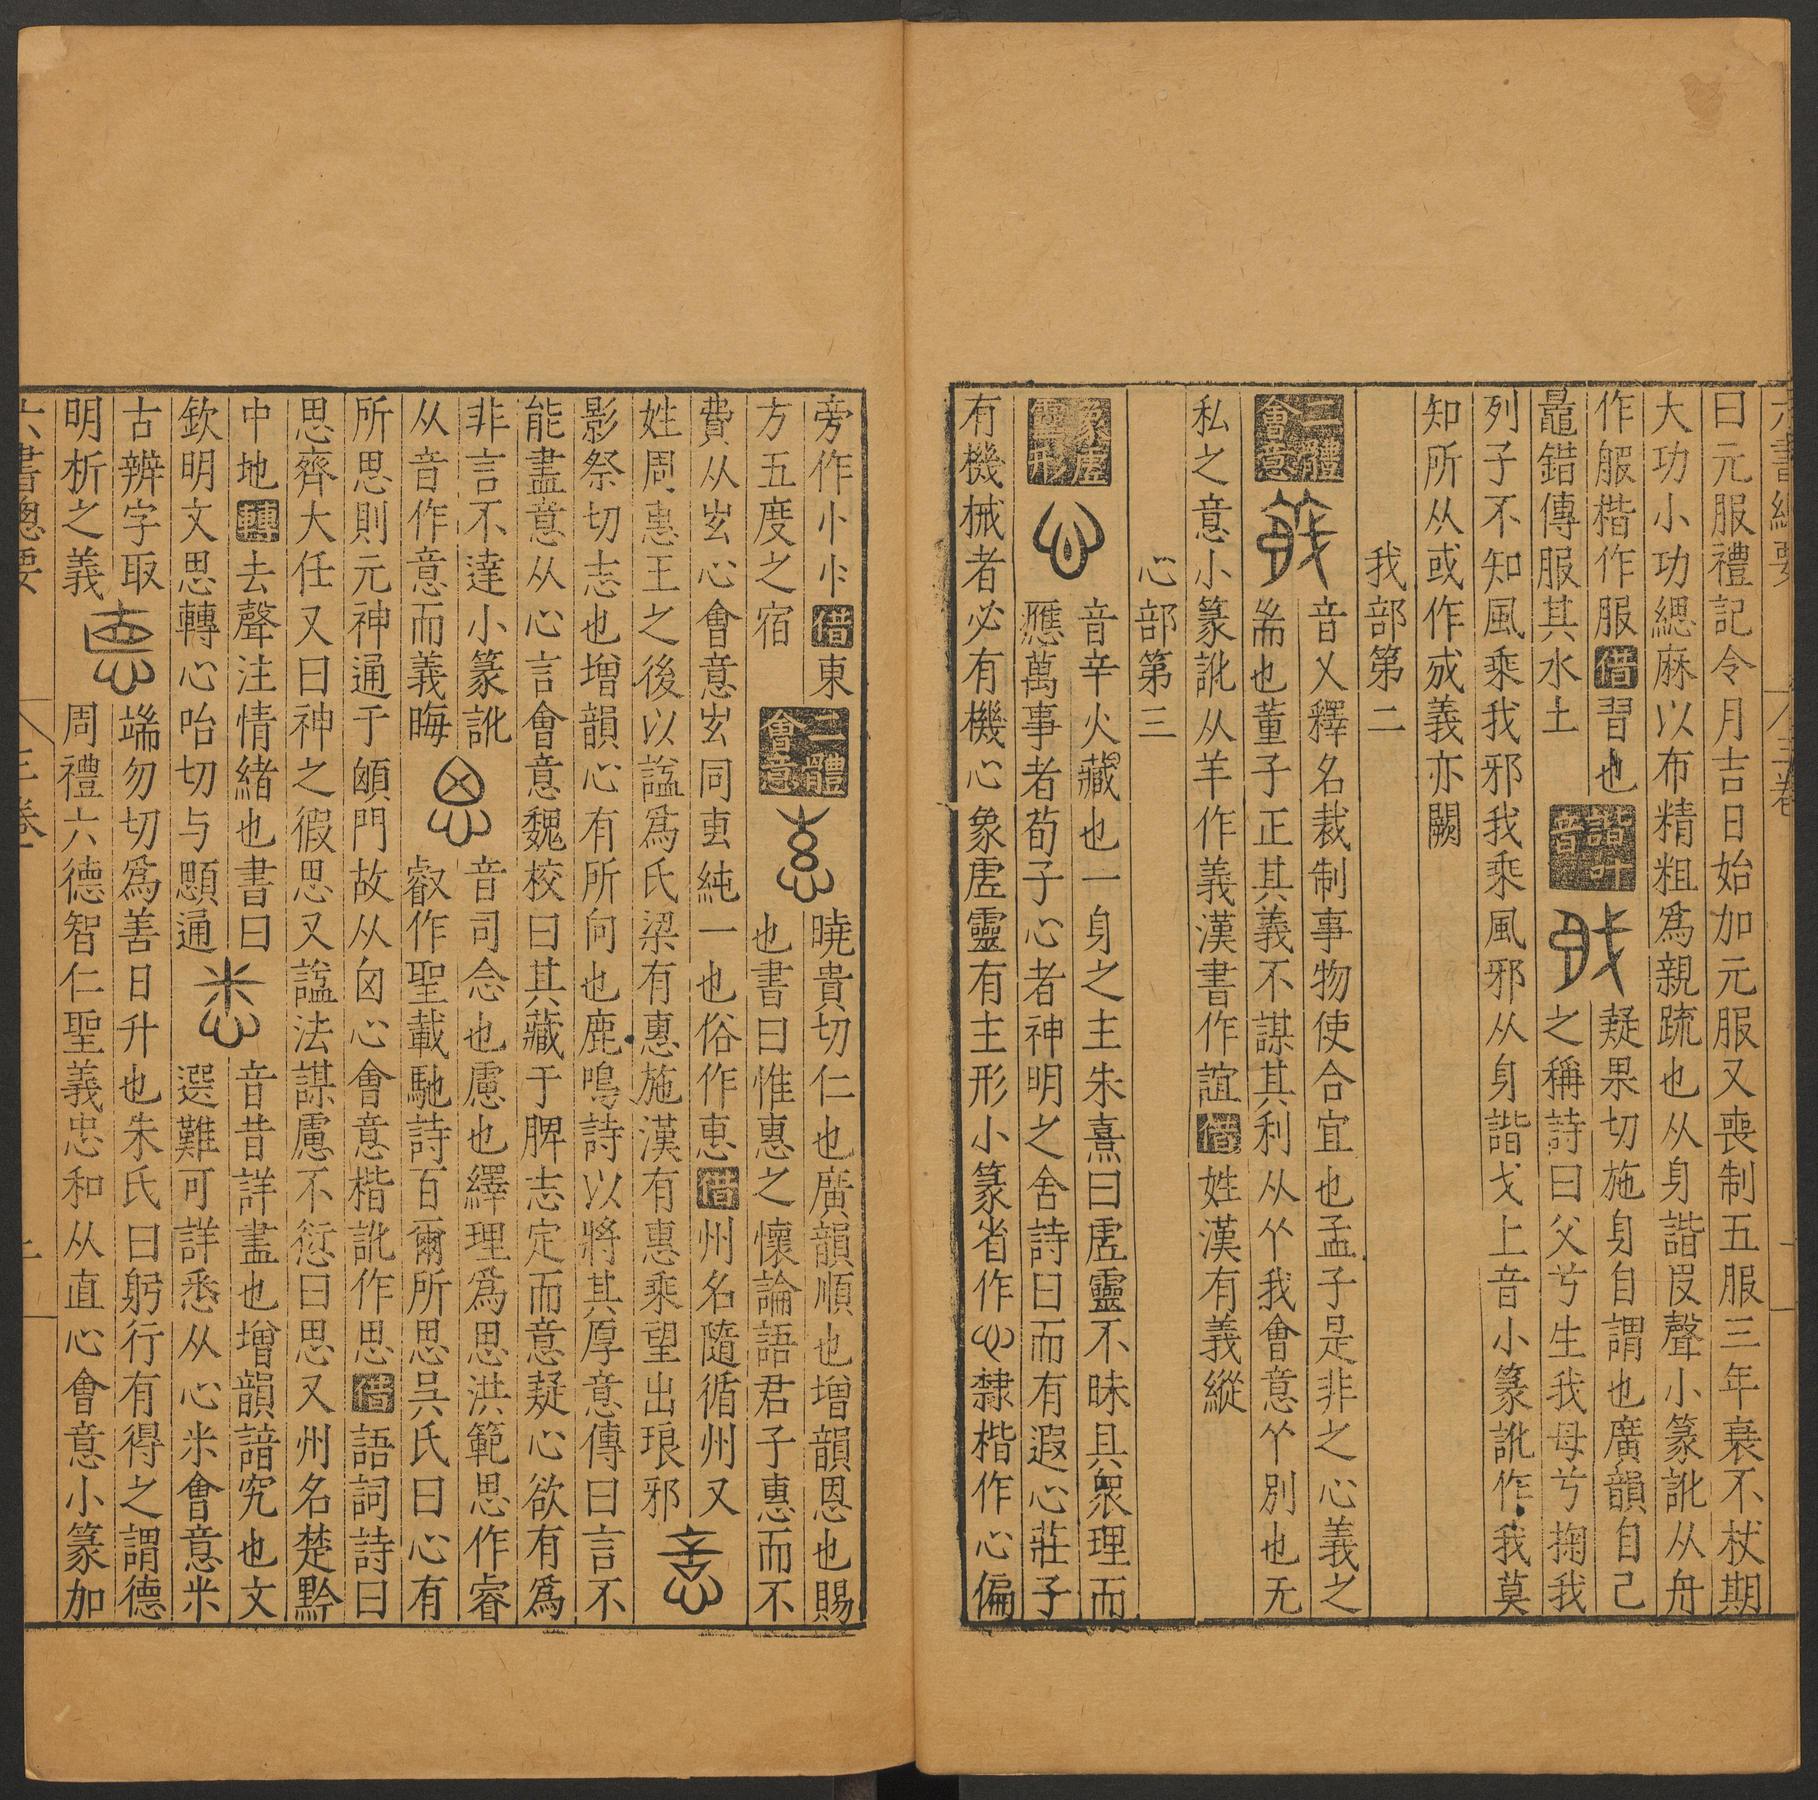 六書總要 八 三卷
曰元服禮記令月吉日始加元服又喪制五服三年衰不杖期
大功小功緦麻以布精粗為親疏也从身諧𠬝聲小篆訛从舟
作服楷作服借習也 諧升音 疑果切施身自謂也廣韻自己
鼂錯傳服其水土 之稱詩曰父兮生我母兮掬我
列子不知風乘我邪我乘風邪从身諧戈上音小篆訛作我莫
知所从或作成義亦闕
我部第二
二體會意 音乂釋名裁制事物使合宜也孟子是非之心義之
耑也董子正其義不謀其利从我會意 別也无
私之意小篆訛从羊作義漢書作誼借姓漢有義縱
心部第三
象虗靈形 音辛火藏也一身之主朱熹曰虗靈不昧具衆理而
應萬事者荀子心者神明之舍詩曰而有遐心莊子
有機械者必有機心象虗靈有主形小篆省作心隸楷作心偏
旁作忄⺗借東 曉貴切仁也廣韻順也增韻恩也賜
方五度之宿 二體會意 也書曰惟惠之懷論語君子惠而不
費从叀心會意叀同專純一也俗作恵借州名隨循州又
姓周惠王之後以諡為氏梁有惠施漢有惠乘望出琅邪
影祭切志也增韻心有所向也鹿鳴詩以將其厚意傳曰言不
能盡意从心言會意魏校曰其藏于脾志定而意疑心欲有為
非言不達小篆訛 音司念也慮也繹理為思洪範思作睿
从音作意而義晦 睿作聖載馳詩百爾所思吳氏曰心有
所思則元神通于頤門故从囟心會意楷訛作思借語詞詩曰
思齊大任又曰神之徦思又諡法謀慮不愆曰思又州名楚黔
中地轉去聲注情緒也書曰 音昔詳盡也增韻諳究也文
欽明文思轉心咍切与顋通 選難可詳悉从心米會意米
古辨字取 端勿切為善日升也朱氏曰躬行有得之謂德
明析之義 周禮六德智仁聖義忠和从直心會意小篆加
六書總要 三卷